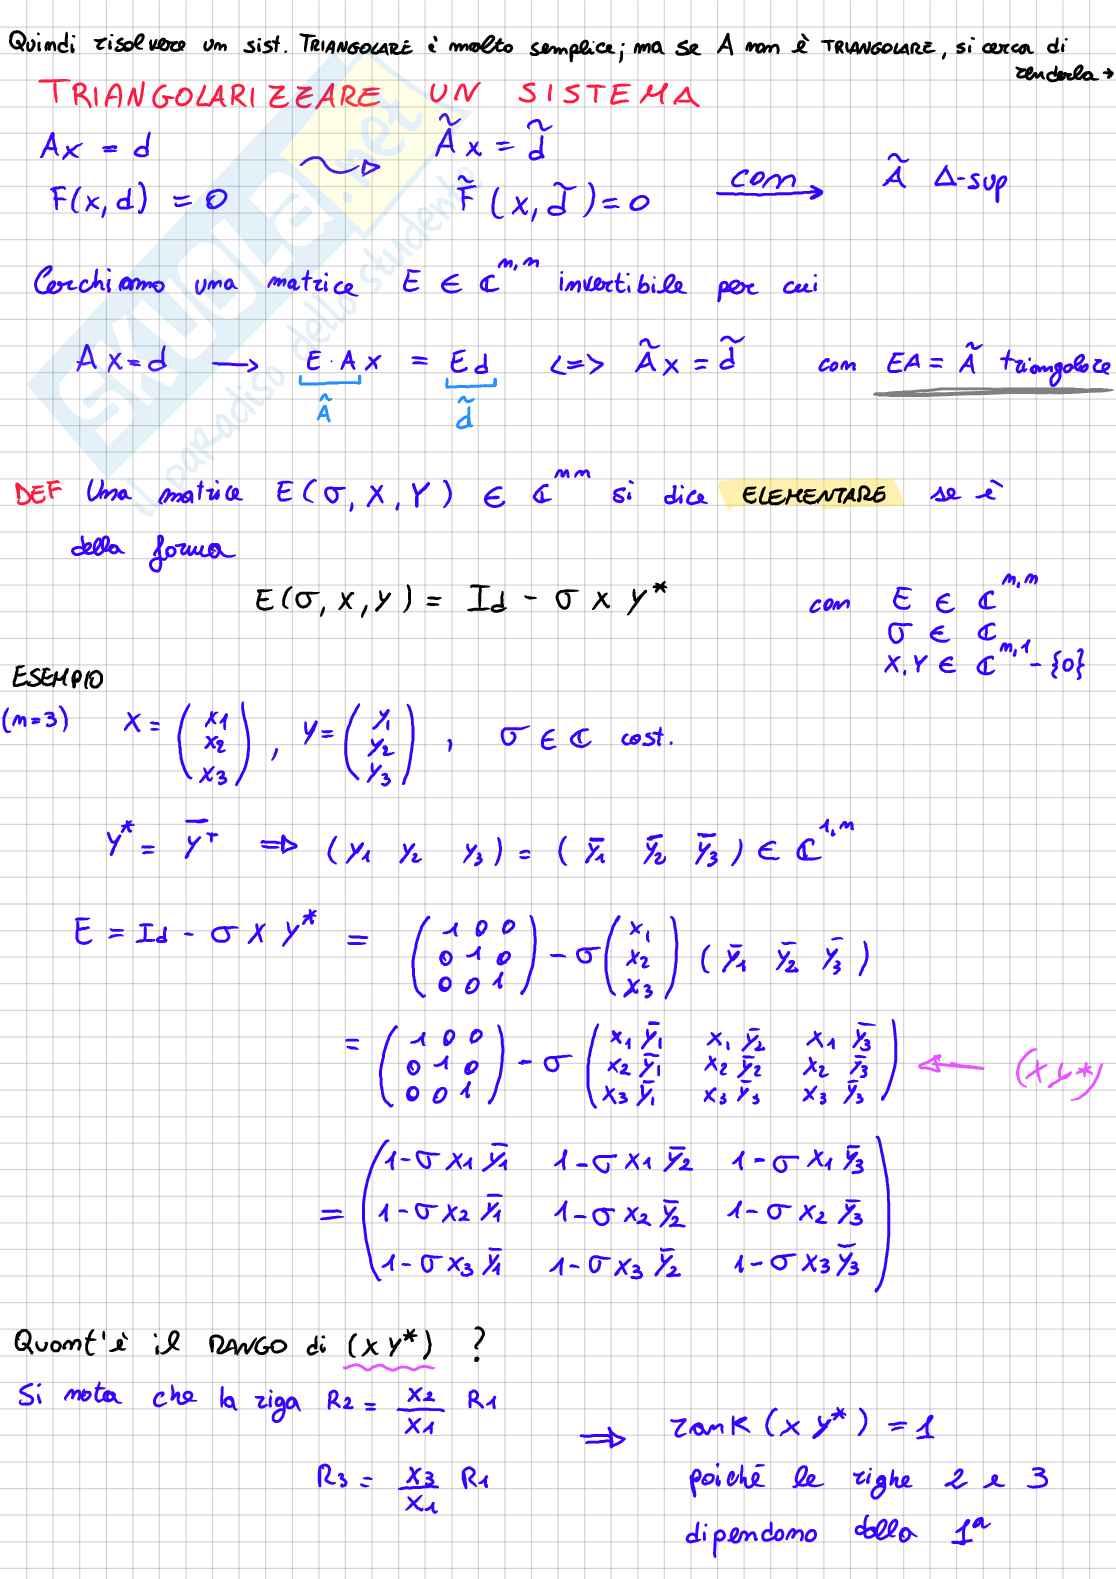 Quindi risolvere un sist. TRIANGOLARE è molto semplice; ma se A non è TRIANGOLARE, si cerca di
renderla →
TRIANGOLARIZZARE UN SISTEMA
Ax = d
Ãx = d̃
F(x,d) = 0
F̃(x,d̃)=0
con
Ã Δ-sup
Cerchiamo una matrice E ∈ ℂ^{n,n} invertibile per cui
Ax=d → E·Ax = Ed <=> Ãx = d̃ con EA = Ã triangolare
Ã
d̃
DEF Una matrice E(σ, X, Y) ∈ ℂ^{nn} si dice ELEMENTARE se è
della forma
E(σ, x, y) = Id - σ x y*
con E ∈ ℂ^{n,n}
σ ∈ ℂ
X,Y ∈ ℂ^{n,1} - {0}
ESEMPIO
(n=3) X = (x1 x2 x3), y = (y1 y2 y3), σ ∈ ℂ cost.
y* = ȳᵀ ⇒ (y1 y2 y3) = (ȳ1 ȳ2 ȳ3) ∈ ℂ^{1,n}
E = Id - σ x y* = (1 0 0
0 1 0
0 0 1) - σ (x1 x2 x3) (ȳ1 ȳ2 ȳ3)
= (1 0 0
0 1 0
0 0 1) - σ (x1 ȳ1 x1 ȳ2 x1 ȳ3
x2 ȳ1 x2 ȳ2 x2 ȳ3
x3 ȳ1 x3 ȳ3 x3 ȳ3) ← (x y*)
= (1-σ x1 ȳ1 1-σ x1 ȳ2 1-σ x1 ȳ3
1-σ x2 ȳ1 1-σ x2 ȳ2 1-σ x2 ȳ3
1-σ x3 ȳ1 1-σ x3 ȳ2 1-σ x3 ȳ3)
Quant'è il RANGO di (x y*) ?
Si nota che la riga R2 = x2/x1 R1
⇒ rank (x y*) = 1
R3 = x3/x1 R1
poiché le righe 2 e 3
dipendono dalla 1ª
skuola.net
il paradiso dello studente